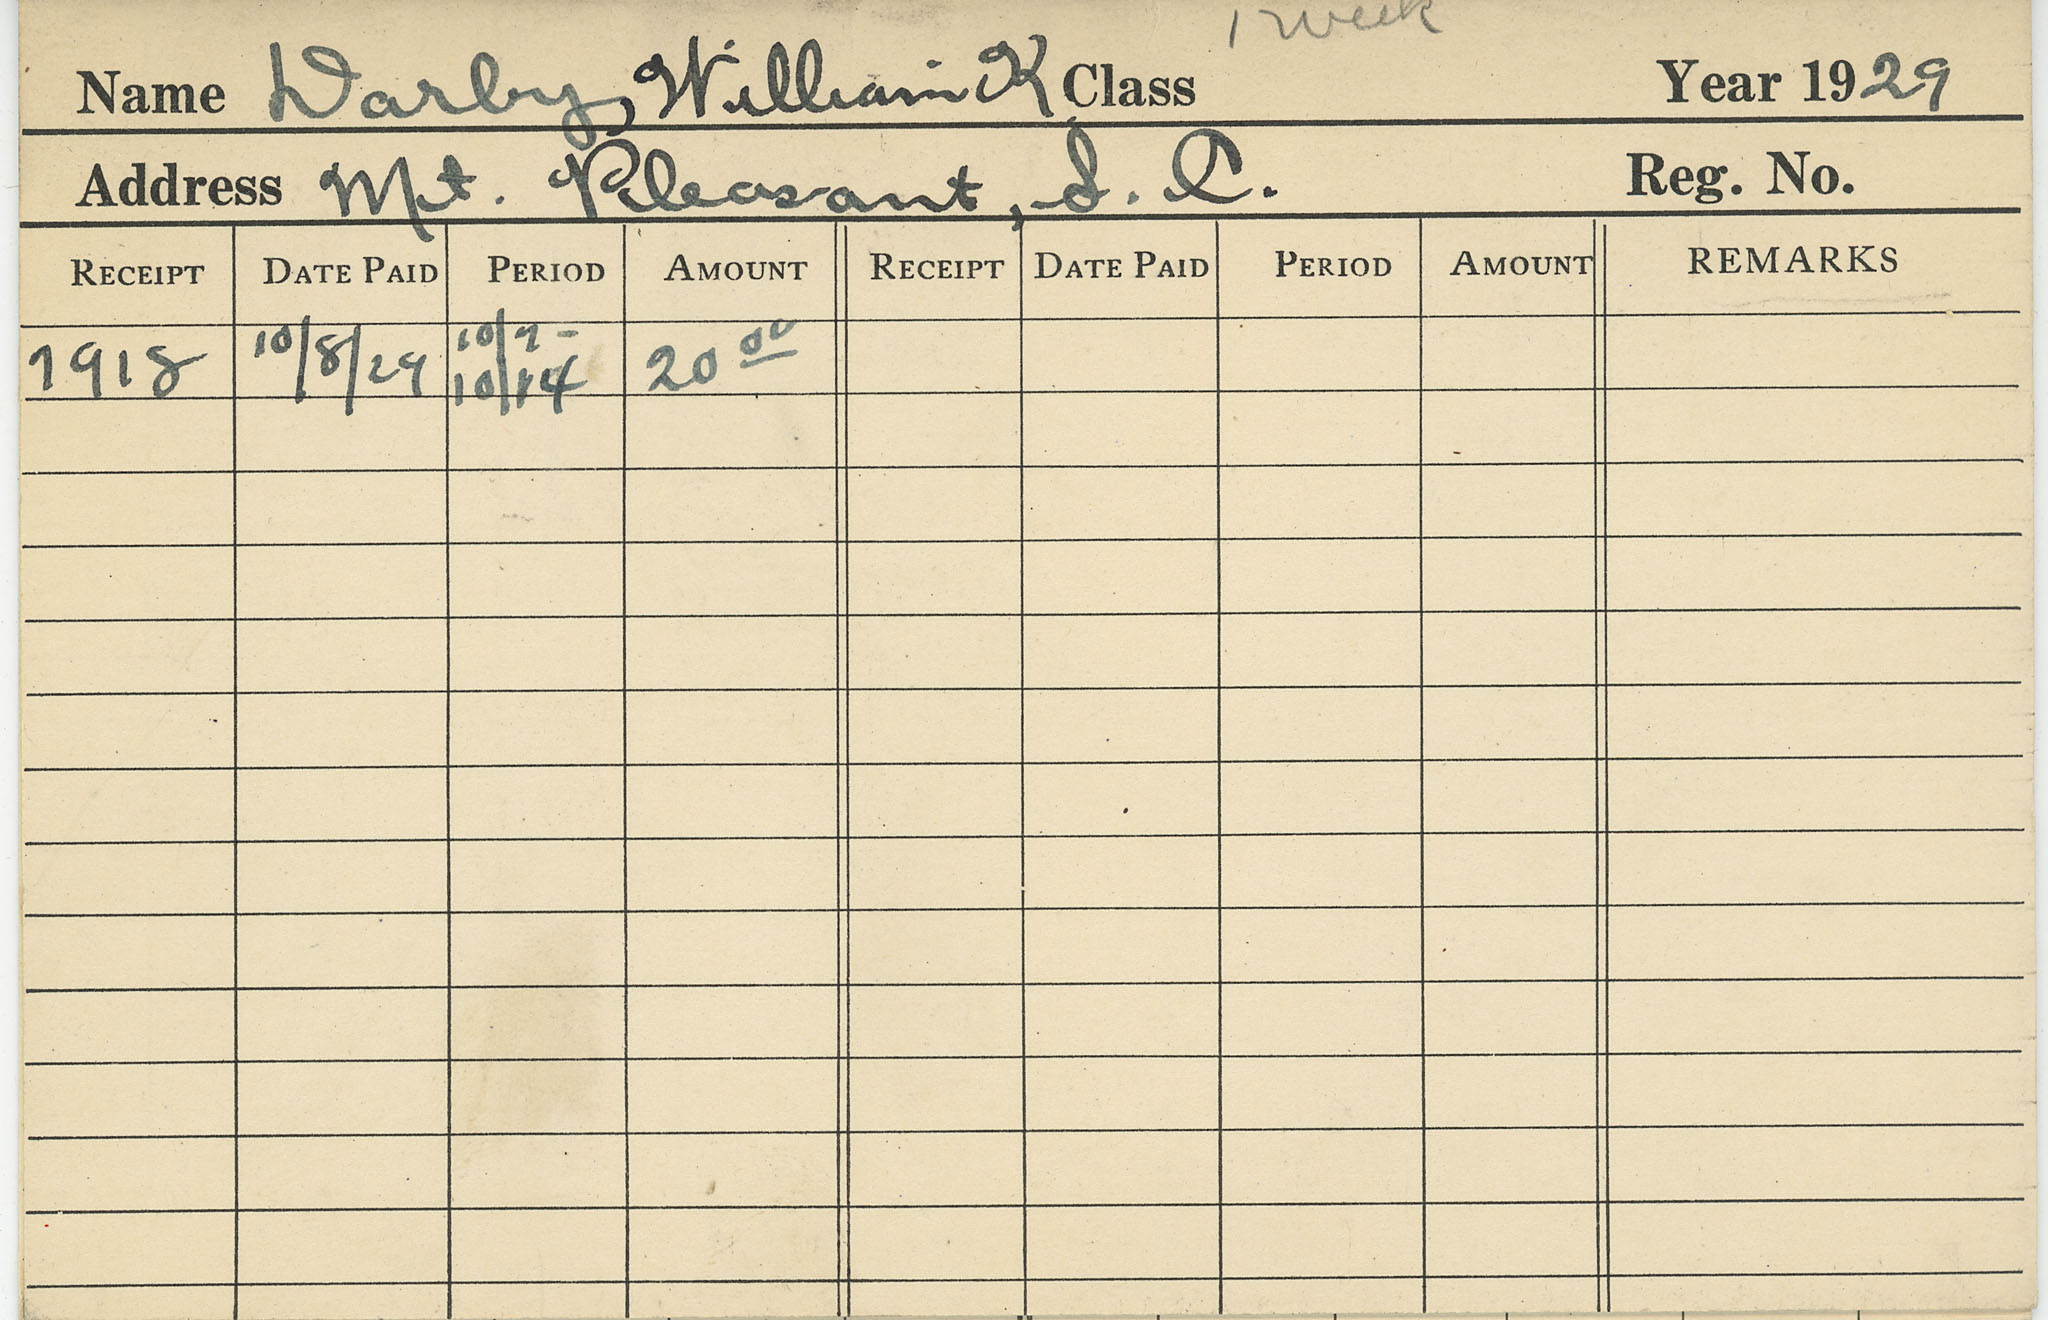 1 week
Name Darby, William K Class Year 1929
Address Mt. Pleasant, S. C. Reg. No.
RECEIPT DATE PAID PERIOD AMOUNT RECEIPT DATE PAID PERIOD AMOUNT REMARKS
7918 10/8/29 10/7- 20 00
10/14